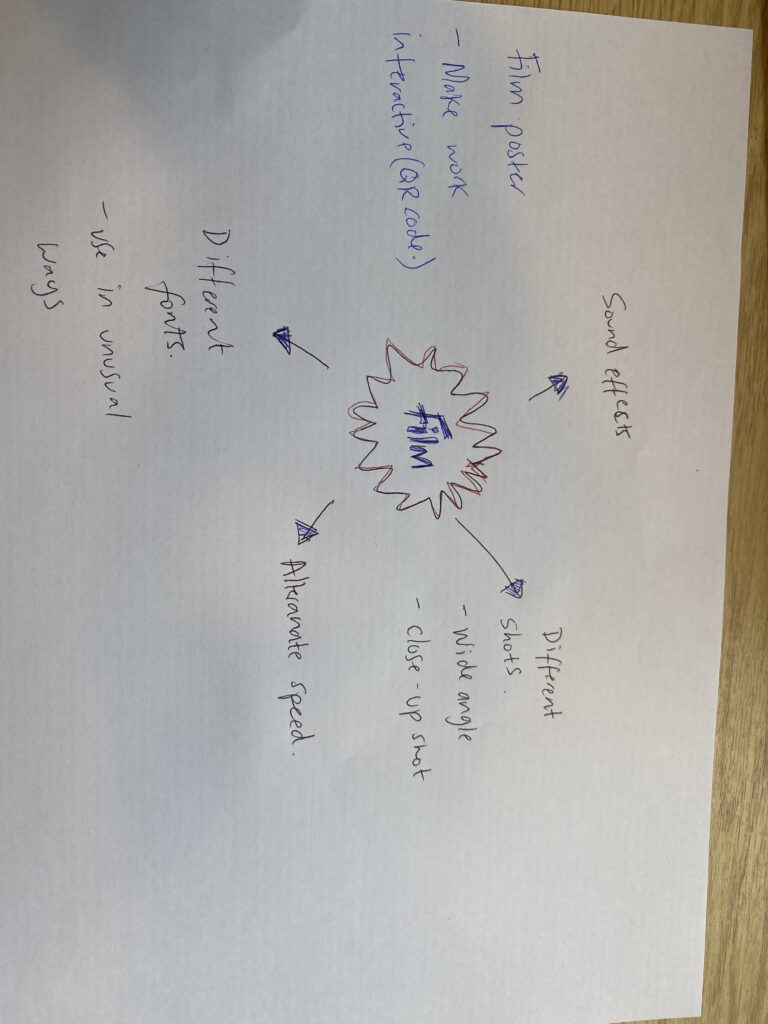 Sound effects
Film poster
- Make work
interactive (QR code.)
Film
Different
shots.
- Wide angle
- close-up shot
Different
fonts.
- use in unusual
ways
Alteranate speed.